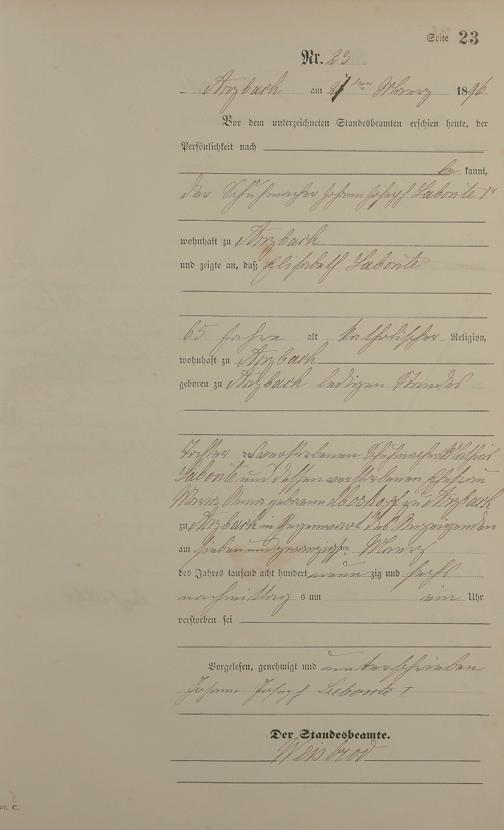 Seite 23
Nr. 23
Arzbach am 27ten Maerz 1896
Vor dem unterzeichneten Standesbeamten erschien heute, der
Persönlichkeit nach
be kannt,
der Schuhmacher Johann Joseph Labonte Ir
wohnhaft zu Arzbach
und zeigte an, daß Elisabeth Labonte
65 Jahre alt katholischer Religion,
wohnhaft zu Arzbach
geboren zu Arzbach ledigen Standes
Tochter des verstorbenen Schuhmacher Mathias
Labonte und dessen verstorbenen Ehefrau
Maria Anna geborene zu Arzbach
zu Arzbach in Gegenwart des Anzeigenden
am sieben und zwanzigsten Maerz
des Jahres tausend acht hundert neun zig und sechs
nachmittag s um ein Uhr
verstorben sei
Vorgelesen, genehmigt und unterschrieben
Johann Josef Labonte I
Der Standesbeamte.
Weisbrod
C.